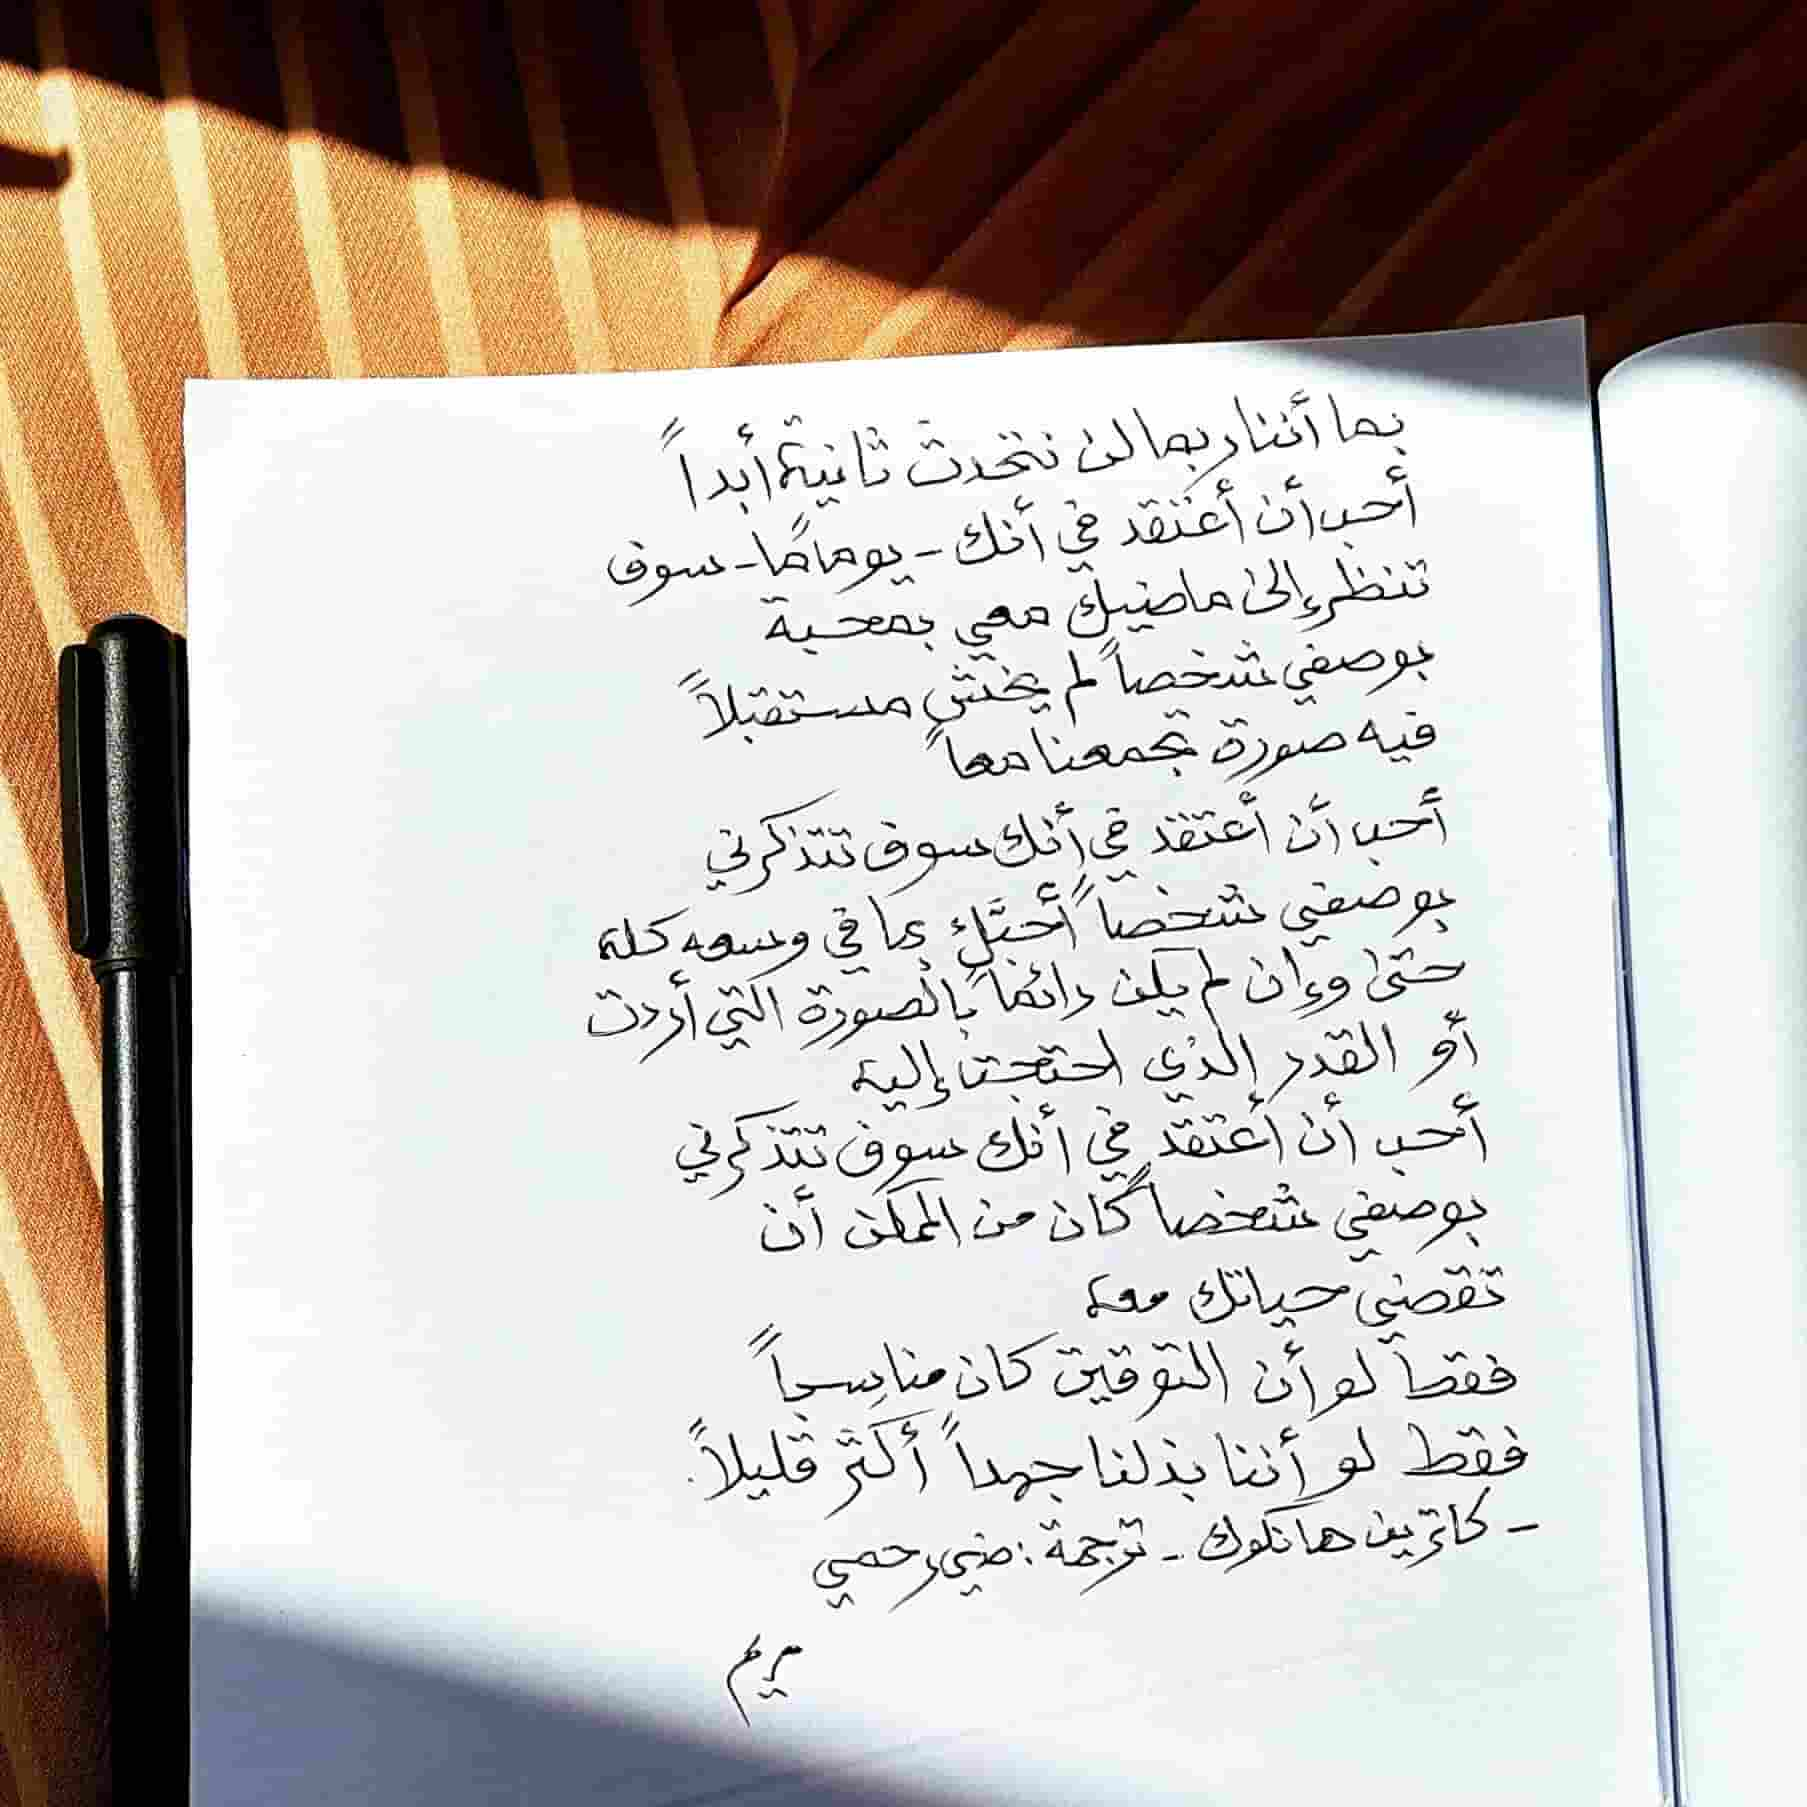 بما أننا ربما لن نتحدث ثانية أبداً
أحب أن أعتقد في أنك - يوما ما - سوف
تنظر إلى ماضيك معي بمحبة
بوصفي شخصاً لم يخش مستقبلاً
فيه صورة تجمعنا معاً
أحب أن أعتقد في أنك سوف تتذكرني
بوصفي شخصاً أحبَّك بما في وسعه كله
حتى وإن لم يكن دائماً بالصورة التي أردت
أو القدر الذي احتجت إليه
أحب أن أعتقد في أنك سوف تتذكرني
بوصفي شخصاً كان من الممكن أن
تقضي حياتك معه
فقط لو أن التوقيت كان مناسباً
فقط لو أننا بذلنا جهداً أكثر قليلاً.
- كاترين هانكوك - ترجمة: ضي رحمي
مريم